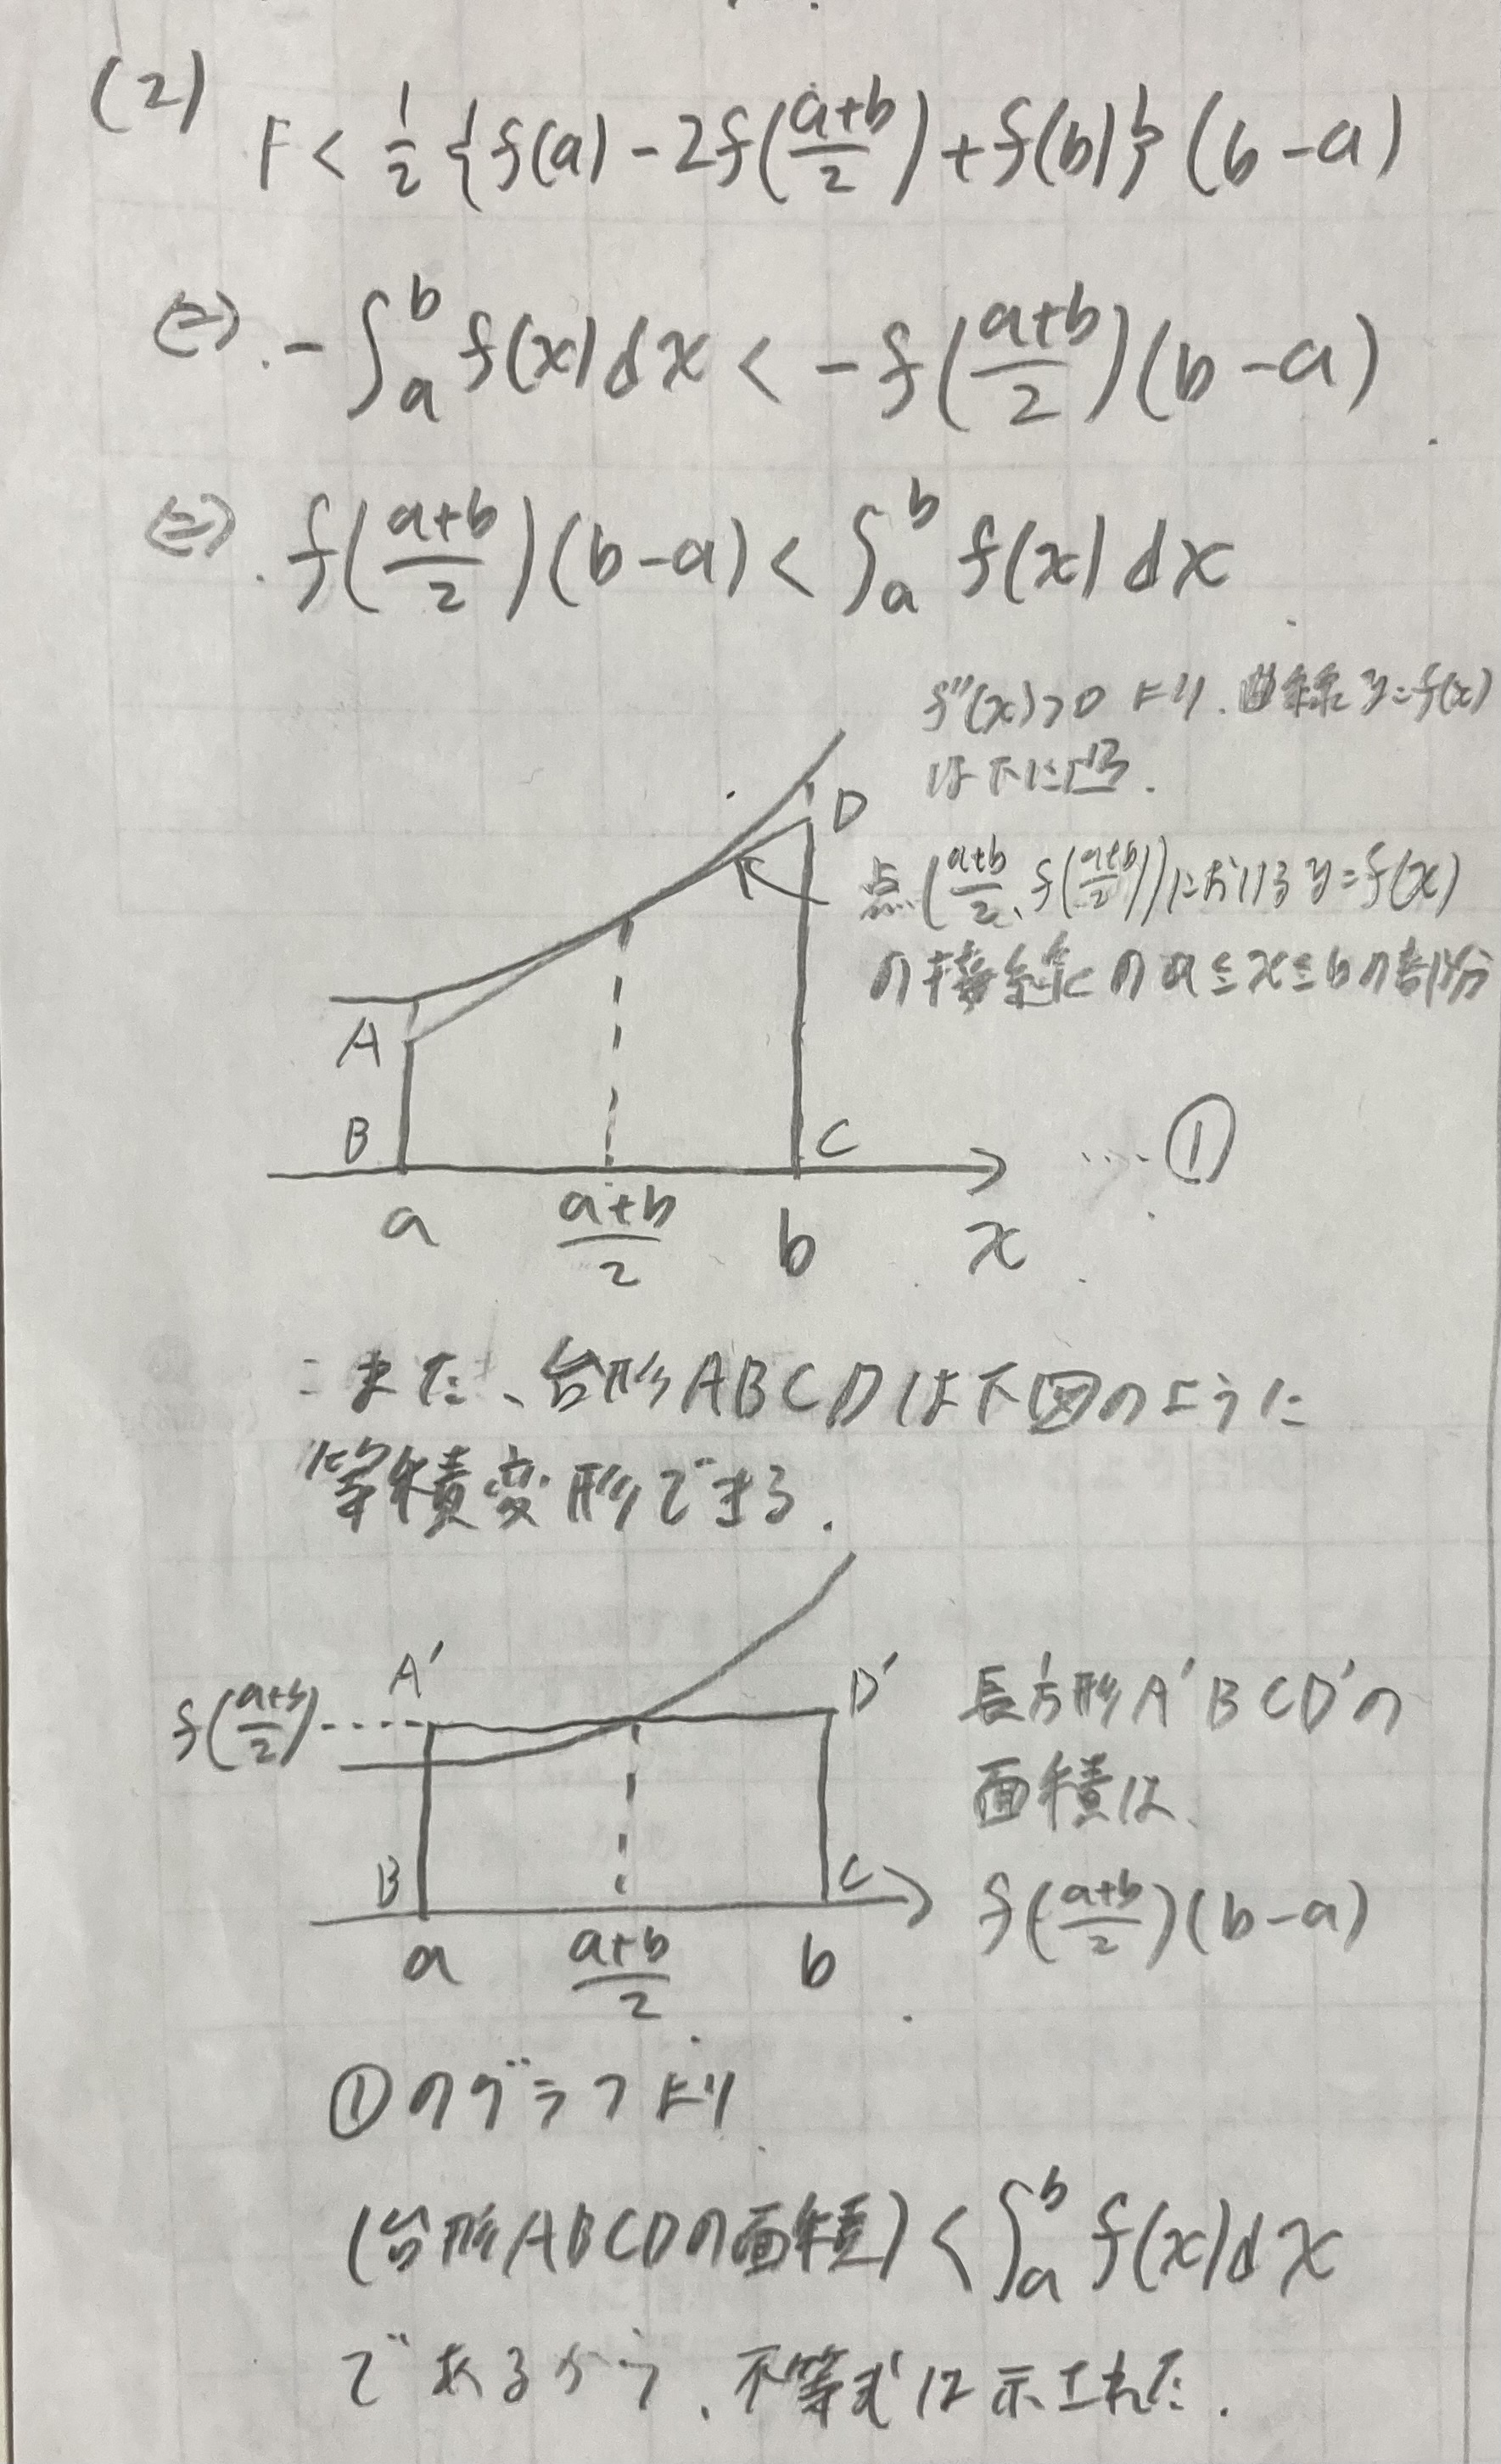 (2) F < 1/2 {f(a) - 2f((a+b)/2) + f(b)} (b-a)
⇔ -∫_a^b f(x)dx < -f((a+b)/2)(b-a)
⇔ f((a+b)/2)(b-a) < ∫_a^b f(x)dx
f''(x)>0 より、曲線 y=f(x)
は下に凸.
点((a+b)/2、f((a+b)/2))における y=f(x)
の接線の a≦x≦b の部分
A
D
B
C
…①
a
(a+b)/2
b
x
また、台形ABCDは下図のように
等積変形できる.
f((a+b)/2)
A'
D'
B
C
a
(a+b)/2
b
長方形A'BCD'の
面積は、
f((a+b)/2)(b-a)
①のグラフより
(台形ABCDの面積) < ∫_a^b f(x)dx
であるから、不等式は示された.